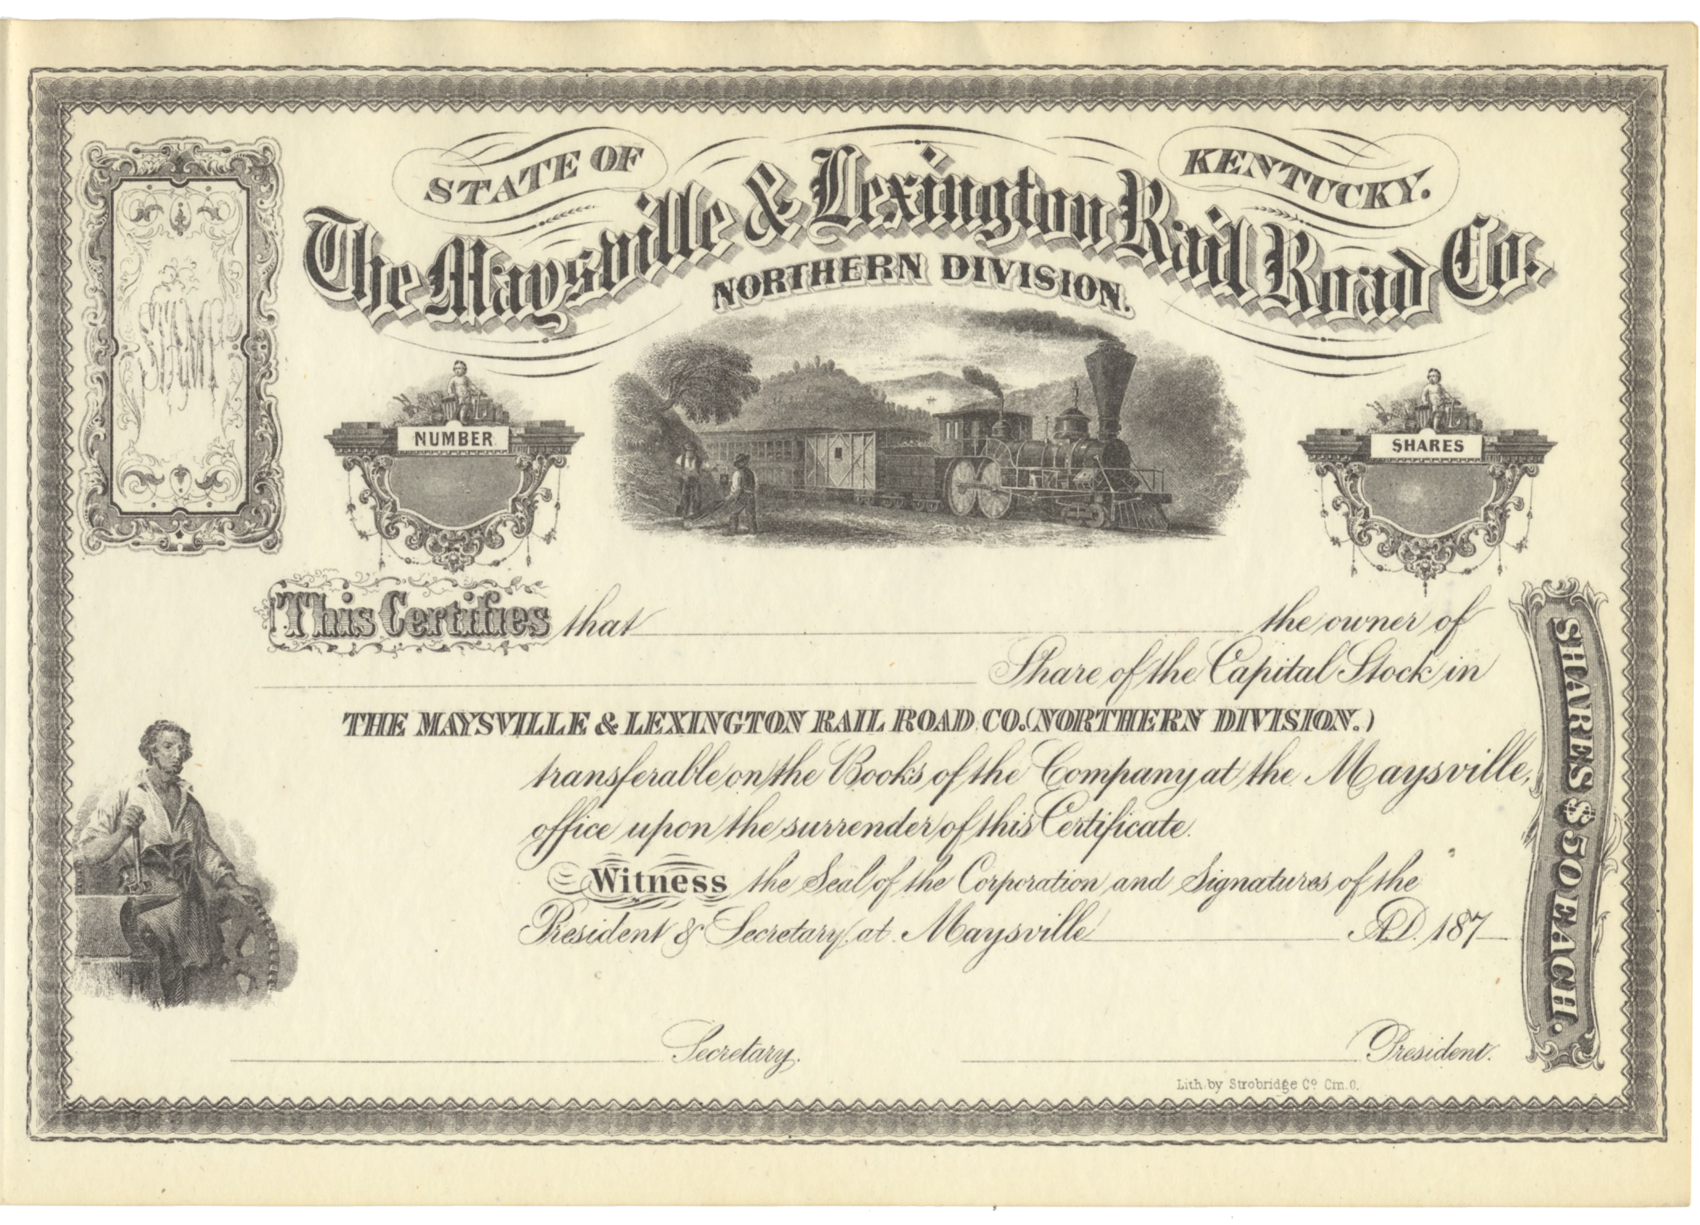 STATE OF KENTUCKY.
The Maysville & Lexington Rail Road Co.
NORTHERN DIVISION.
STAMP
NUMBER
SHARES
This Certifies that the owner of
Share of the Capital Stock in
THE MAYSVILLE & LEXINGTON RAIL ROAD CO. (NORTHERN DIVISION.)
transferable on the Books of the Company at the Maysville,
office upon the surrender of this Certificate.
Witness the Seal of the Corporation and Signatures of the
President & Secretary, at Maysville A.D. 187
Secretary. President.
Lith. by Strobridge Co. Cin. O.
SHARES $50 EACH.